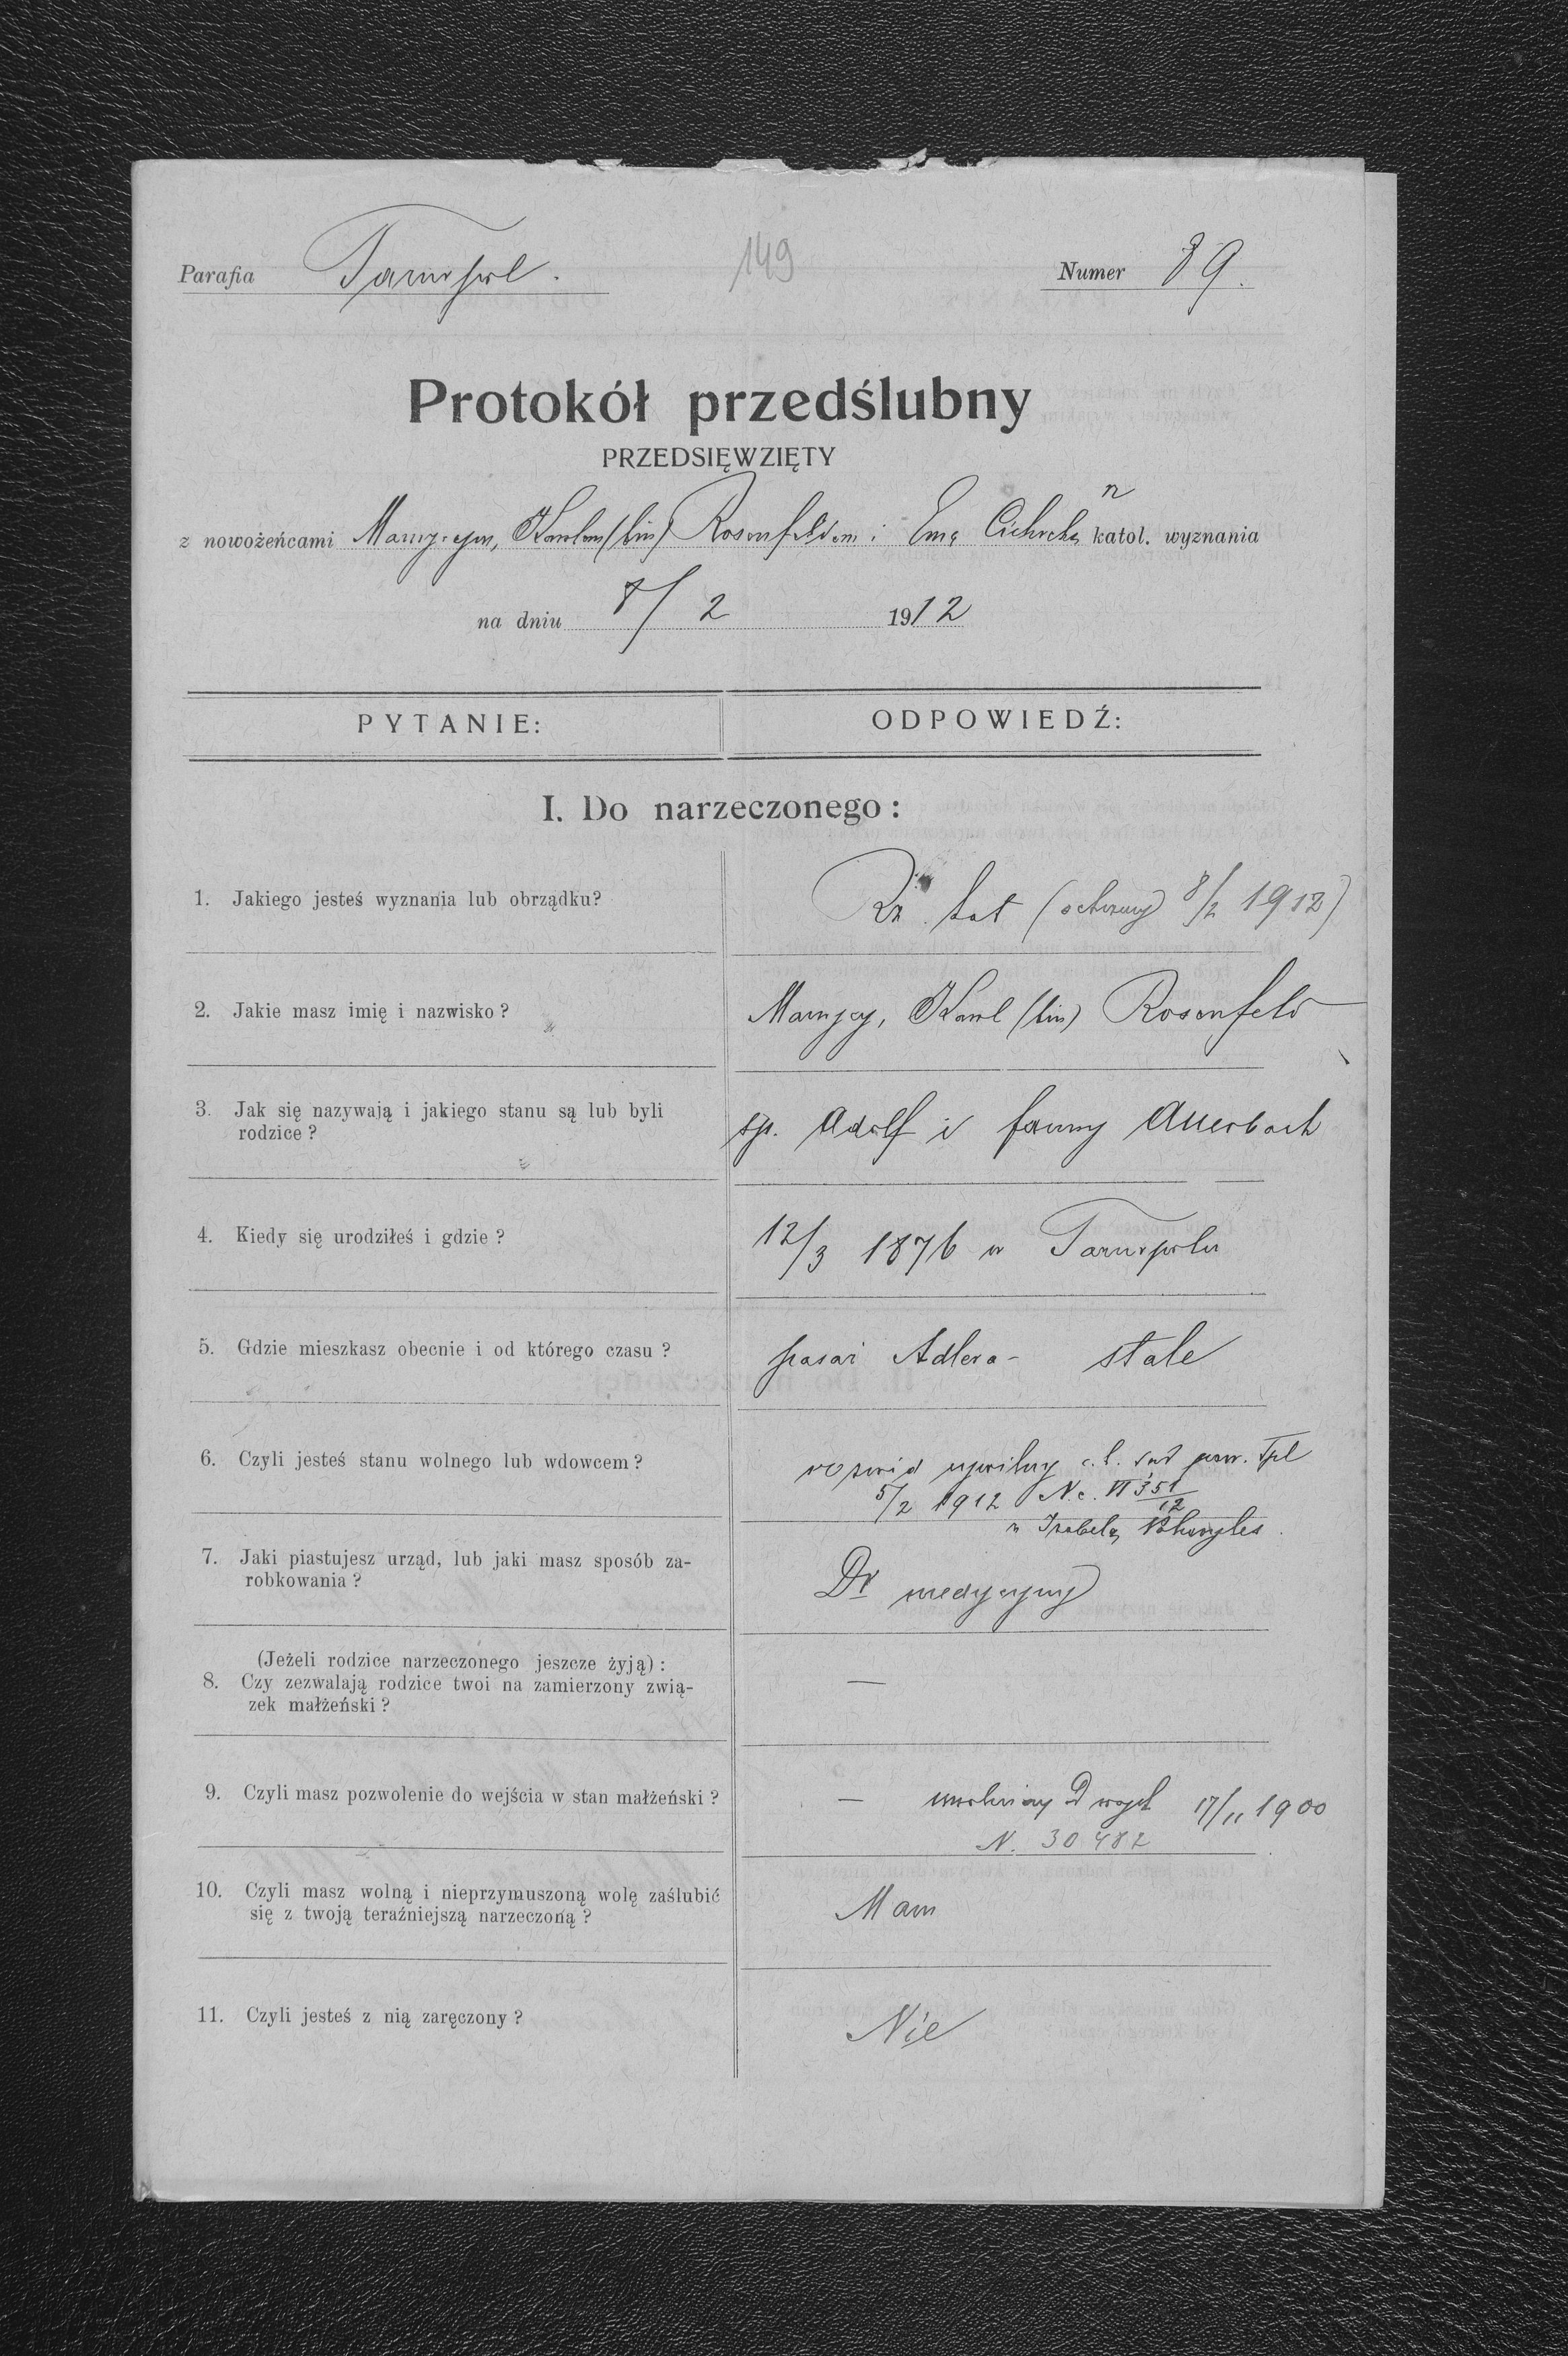 Parafia Tarnopol. 149 Numer 89.
Protokół przedślubny
PRZEDSIĘWZIĘTY
z nowożeńcami Maurycym, Karolem (bin) Rosenfeldem i Emą Cichocką katol. wyznania
na dniu 8/2 1912
PYTANIE: ODPOWIEDŹ:
I. Do narzeczonego:
1. Jakiego jesteś wyznania lub obrządku? Rz. kat (ochrzczony 8/2 1912)
2. Jakie masz imię i nazwisko? Maurycy, Karol (bin) Rosenfeld
3. Jak się nazywają i jakiego stanu są lub byli
rodzice? sp. Adolf i Fanny Auerbach
4. Kiedy się urodziłeś i gdzie? 12/3 1876 w Tarnopolu
5. Gdzie mieszkasz obecnie i od którego czasu? pasaż Adlera - stale
6. Czyli jesteś stanu wolnego lub wdowcem? rozwód cywilny c. k. sąd pow. Tpl
5/2 1912 Nc. VI 351/12
z Izabelą
7. Jaki piastujesz urząd, lub jaki masz sposób za-
robkowania? Dr medycyny
(Jeżeli rodzice narzeczonego jeszcze żyją):
8. Czy zezwalają rodzice twoi na zamierzony zwią-
zek małżeński? —
9. Czyli masz pozwolenie do wejścia w stan małżeński? — uwolniony od wojsk 17/11 1900
N. 30482
10. Czyli masz wolną i nieprzymuszoną wolę zaślubić
się z twoją teraźniejszą narzeczoną? Mam
11. Czyli jesteś z nią zaręczony? Nie